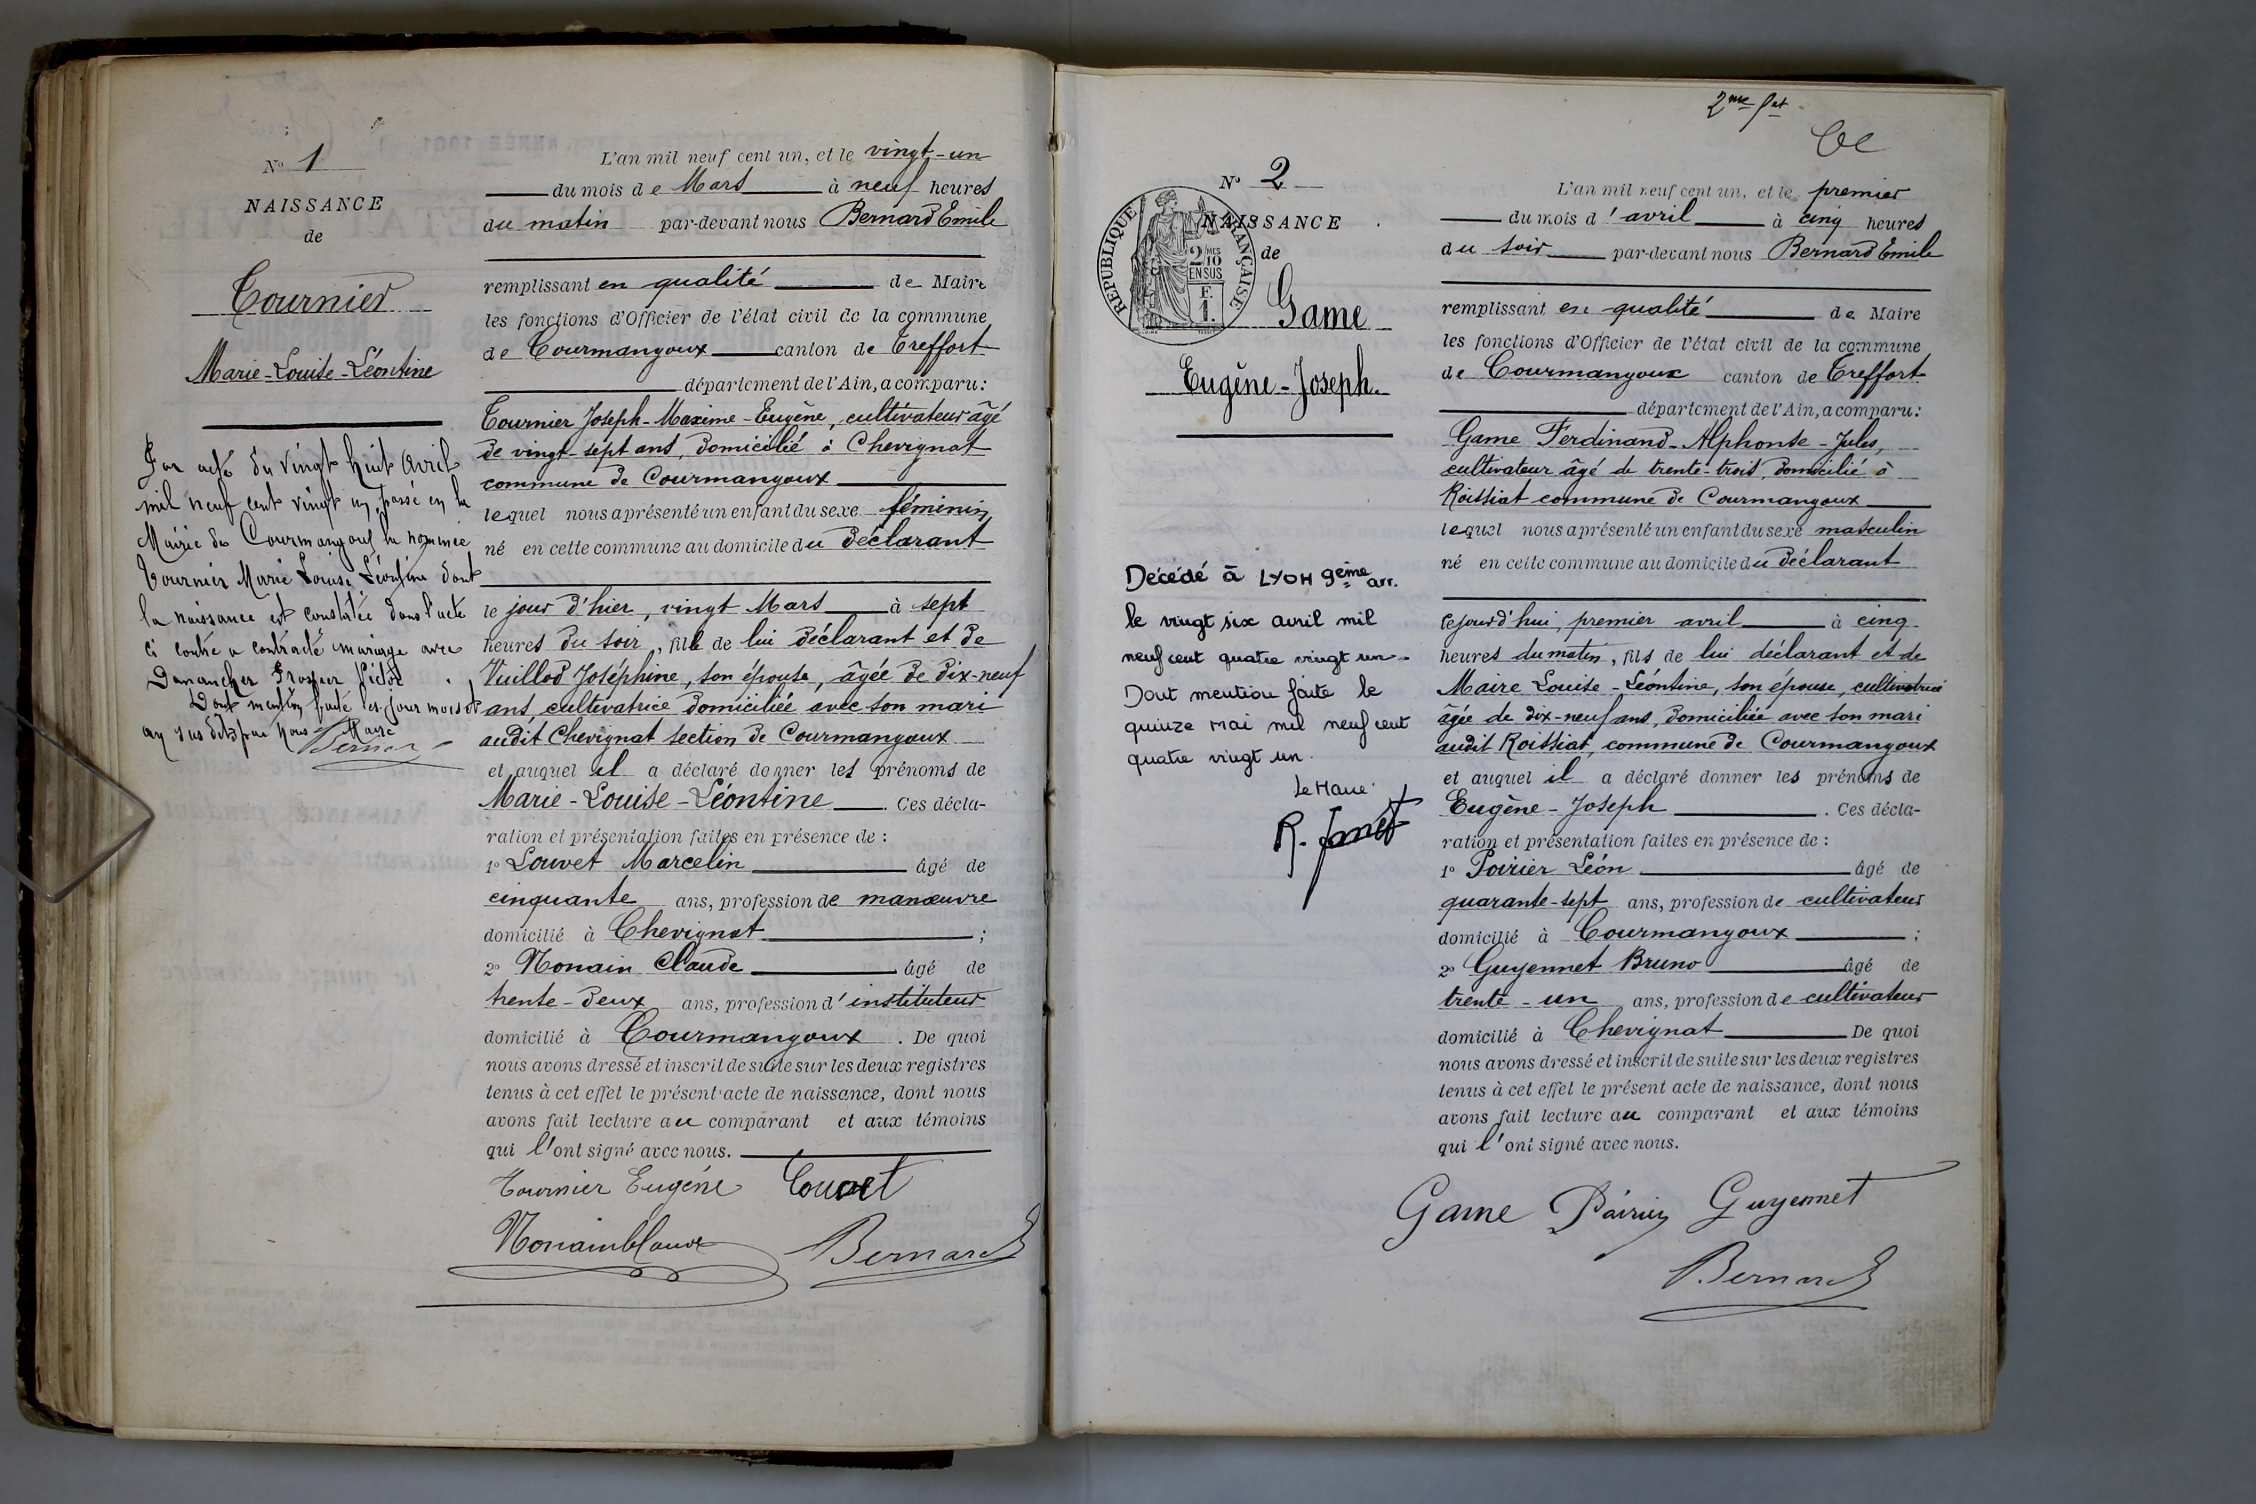 N° 1
NAISSANCE
de
Tournier
Marie-Louise-Léontine
Par acte du vingt huit Avril
mil neuf cent vingt un, passé en la
Mairie de Courmangoux la nommée
Tournier Marie Louise Léontine dont
la naissance est constatée dans l'acte
ci contre a contracté mariage avec
Danancher Prosper Victor
Dont mention faite les jour mois et
an sus dits par Nous Maire
Bernard
L'an mil neuf cent un, et le vingt-un
du mois de Mars à neuf heures
du matin par-devant nous Bernard Emile
remplissant en qualité de Maire
les fonctions d'Officier de l'état civil de la commune
de Courmangoux canton de Treffort
département de l'Ain, a comparu:
Tournier Joseph-Maxime-Eugène, cultivateur âgé
de vingt-sept ans, domicilié à Chevignat
commune de Courmangoux
lequel nous a présenté un enfant du sexe féminin
né en cette commune au domicile du déclarant
le jour d'hier, vingt Mars à sept
heures du soir, fille de lui déclarant et de
Vuillod Joséphine, son épouse, âgée de dix-neuf
ans, cultivatrice domiciliée avec son mari
audit Chevignat section de Courmangoux
et auquel il a déclaré donner les prénoms de
Marie-Louise-Léontine. Ces décla-
ration et présentation faites en présence de :
1° Louvet Marcelin âgé de
cinquante ans, profession de manœuvre
domicilié à Chevignat ;
2° Nonain Claude âgé de
trente-deux ans, profession d'instituteur
domicilié à Courmangoux. De quoi
nous avons dressé et inscrit de suite sur les deux registres
tenus à cet effet le présent acte de naissance, dont nous
avons fait lecture au comparant et aux témoins
qui l'ont signé avec nous.
Tournier Eugène Louvet
Nonain Claude Bernard
2me
N° 2
NAISSANCE
de
RÉPUBLIQUE FRANÇAISE
2/10 MES
EN SUS
F.
1.
Game
Eugène-Joseph.
Décédé à LYON 9ème arr.
le vingt six avril mil
neuf cent quatre vingt un.
Dont mention faite le
quinze mai mil neuf cent
quatre vingt un.
Le Maire
L'an mil neuf cent un, et le premier
du mois d'avril à cinq heures
du soir par-devant nous Bernard Emile
remplissant en qualité de Maire
les fonctions d'Officier de l'état civil de la commune
de Courmangoux canton de Treffort
département de l'Ain, a comparu:
Game Ferdinand-Alphonse-Jules,
cultivateur âgé de trente-trois, domicilié à
Roissiat commune de Courmangoux
lequel nous a présenté un enfant du sexe masculin
né en cette commune au domicile du déclarant
le jourd'hui, premier avril à cinq
heures du matin, fils de lui déclarant et de
Maire Louise-Léontine, son épouse, cultivatrice
âgée de dix-neuf ans, domiciliée avec son mari
audit Roissiat, commune de Courmangoux
et auquel il a déclaré donner les prénoms de
Eugène-Joseph. Ces décla-
ration et présentation faites en présence de :
1° Poirier Léon âgé de
quarante-sept ans, profession de cultivateur
domicilié à Courmangoux ;
2° Guyennet Bruno âgé de
trente-un ans, profession de cultivateur
domicilié à Chevignat De quoi
nous avons dressé et inscrit de suite sur les deux registres
tenus à cet effet le présent acte de naissance, dont nous
avons fait lecture au comparant et aux témoins
qui l'ont signé avec nous.
Game Poirier Guyennet
Bernard